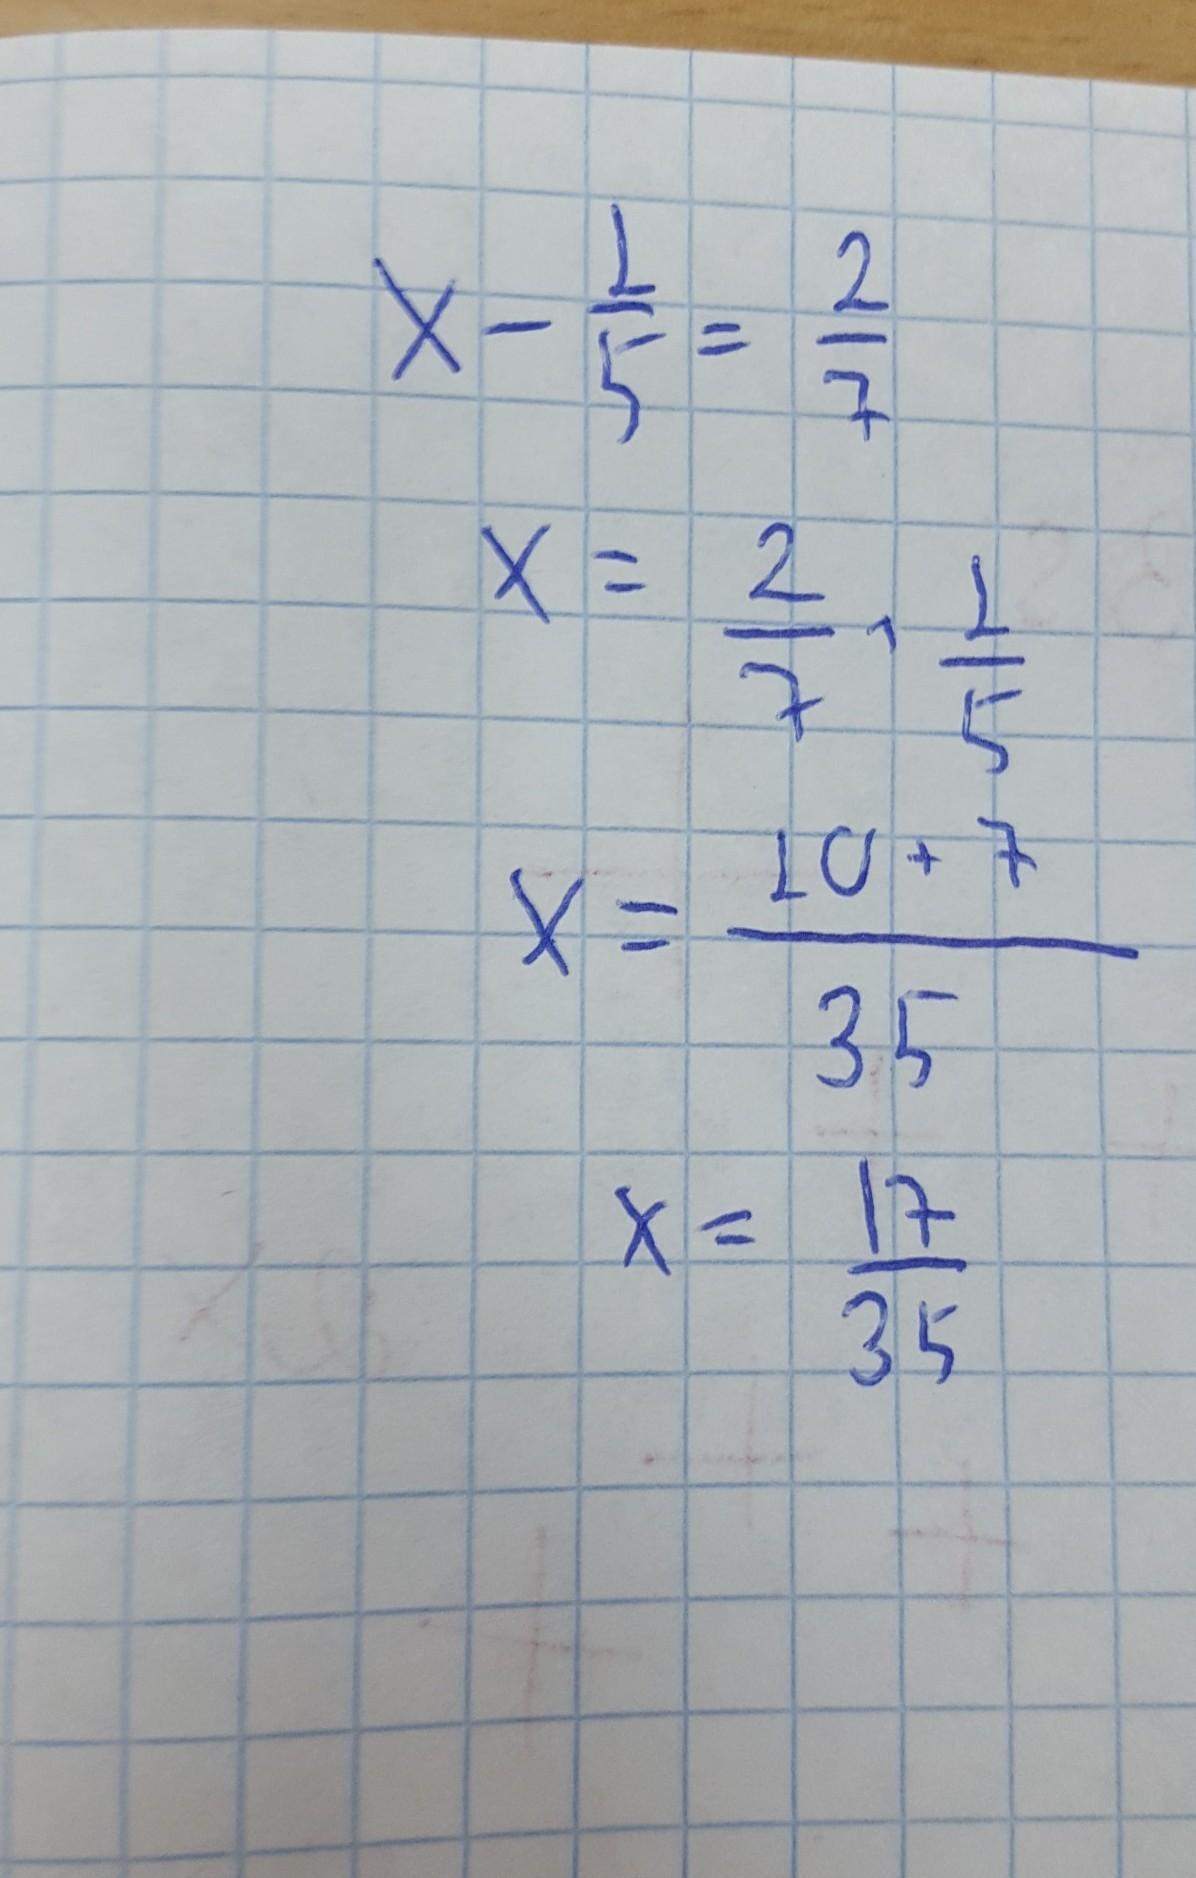 x - 1/5 = 2/7
x = 2/7 · 1/5
x = (10 + 7)/35
x = 17/35